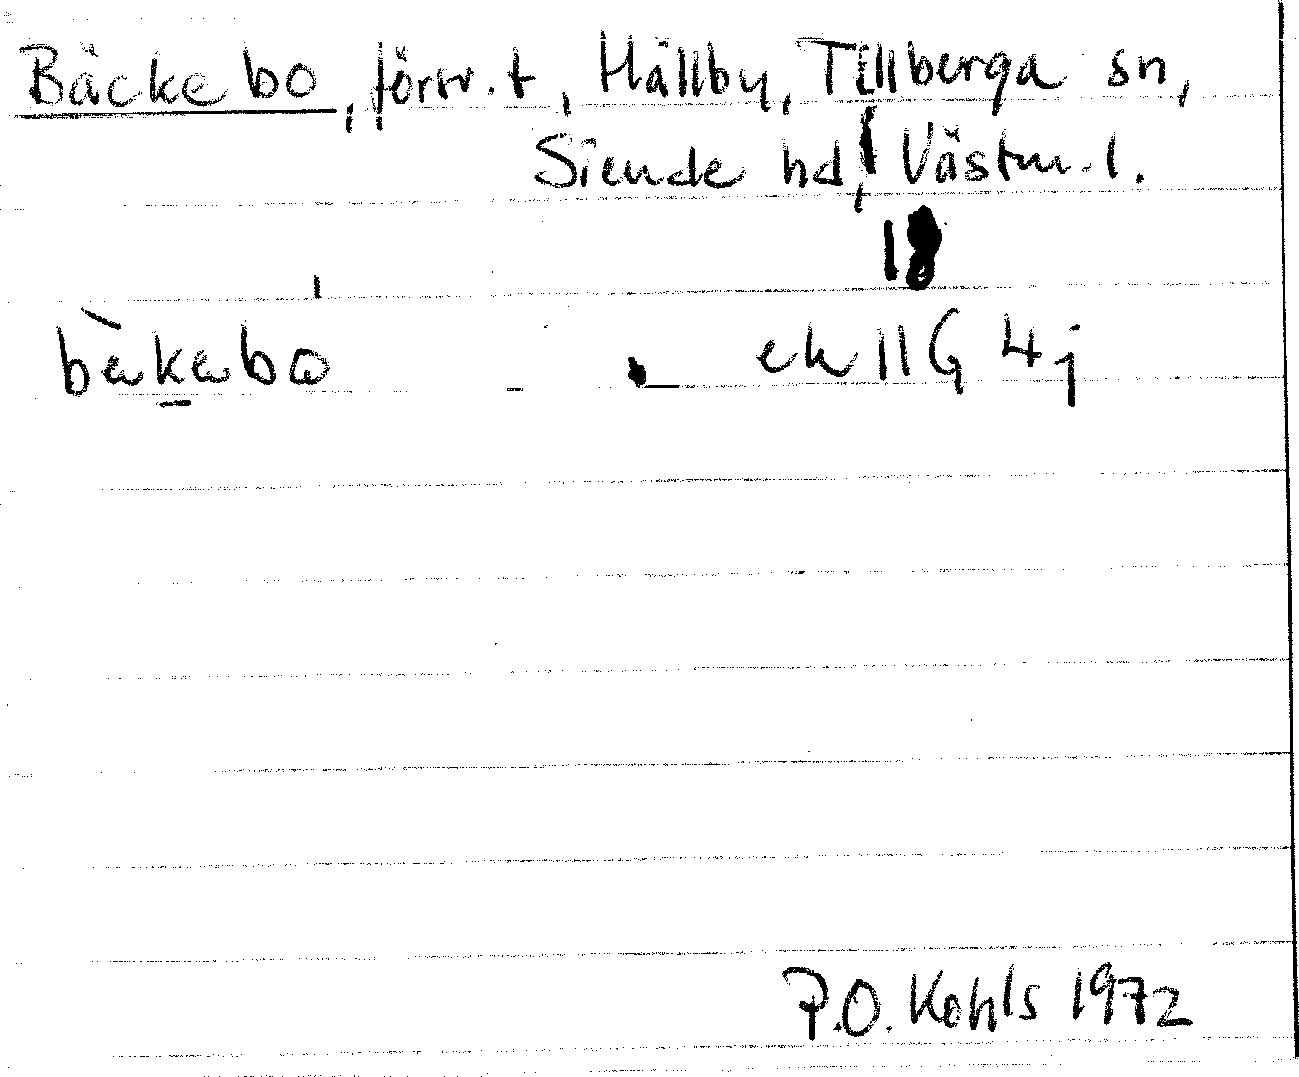 Bäckebo, förw. t, Hällby, Tillberga sn,
Siende hd, Västm. l.
18
bèkebo ek 11G 4j
P.O. Kohls 1972